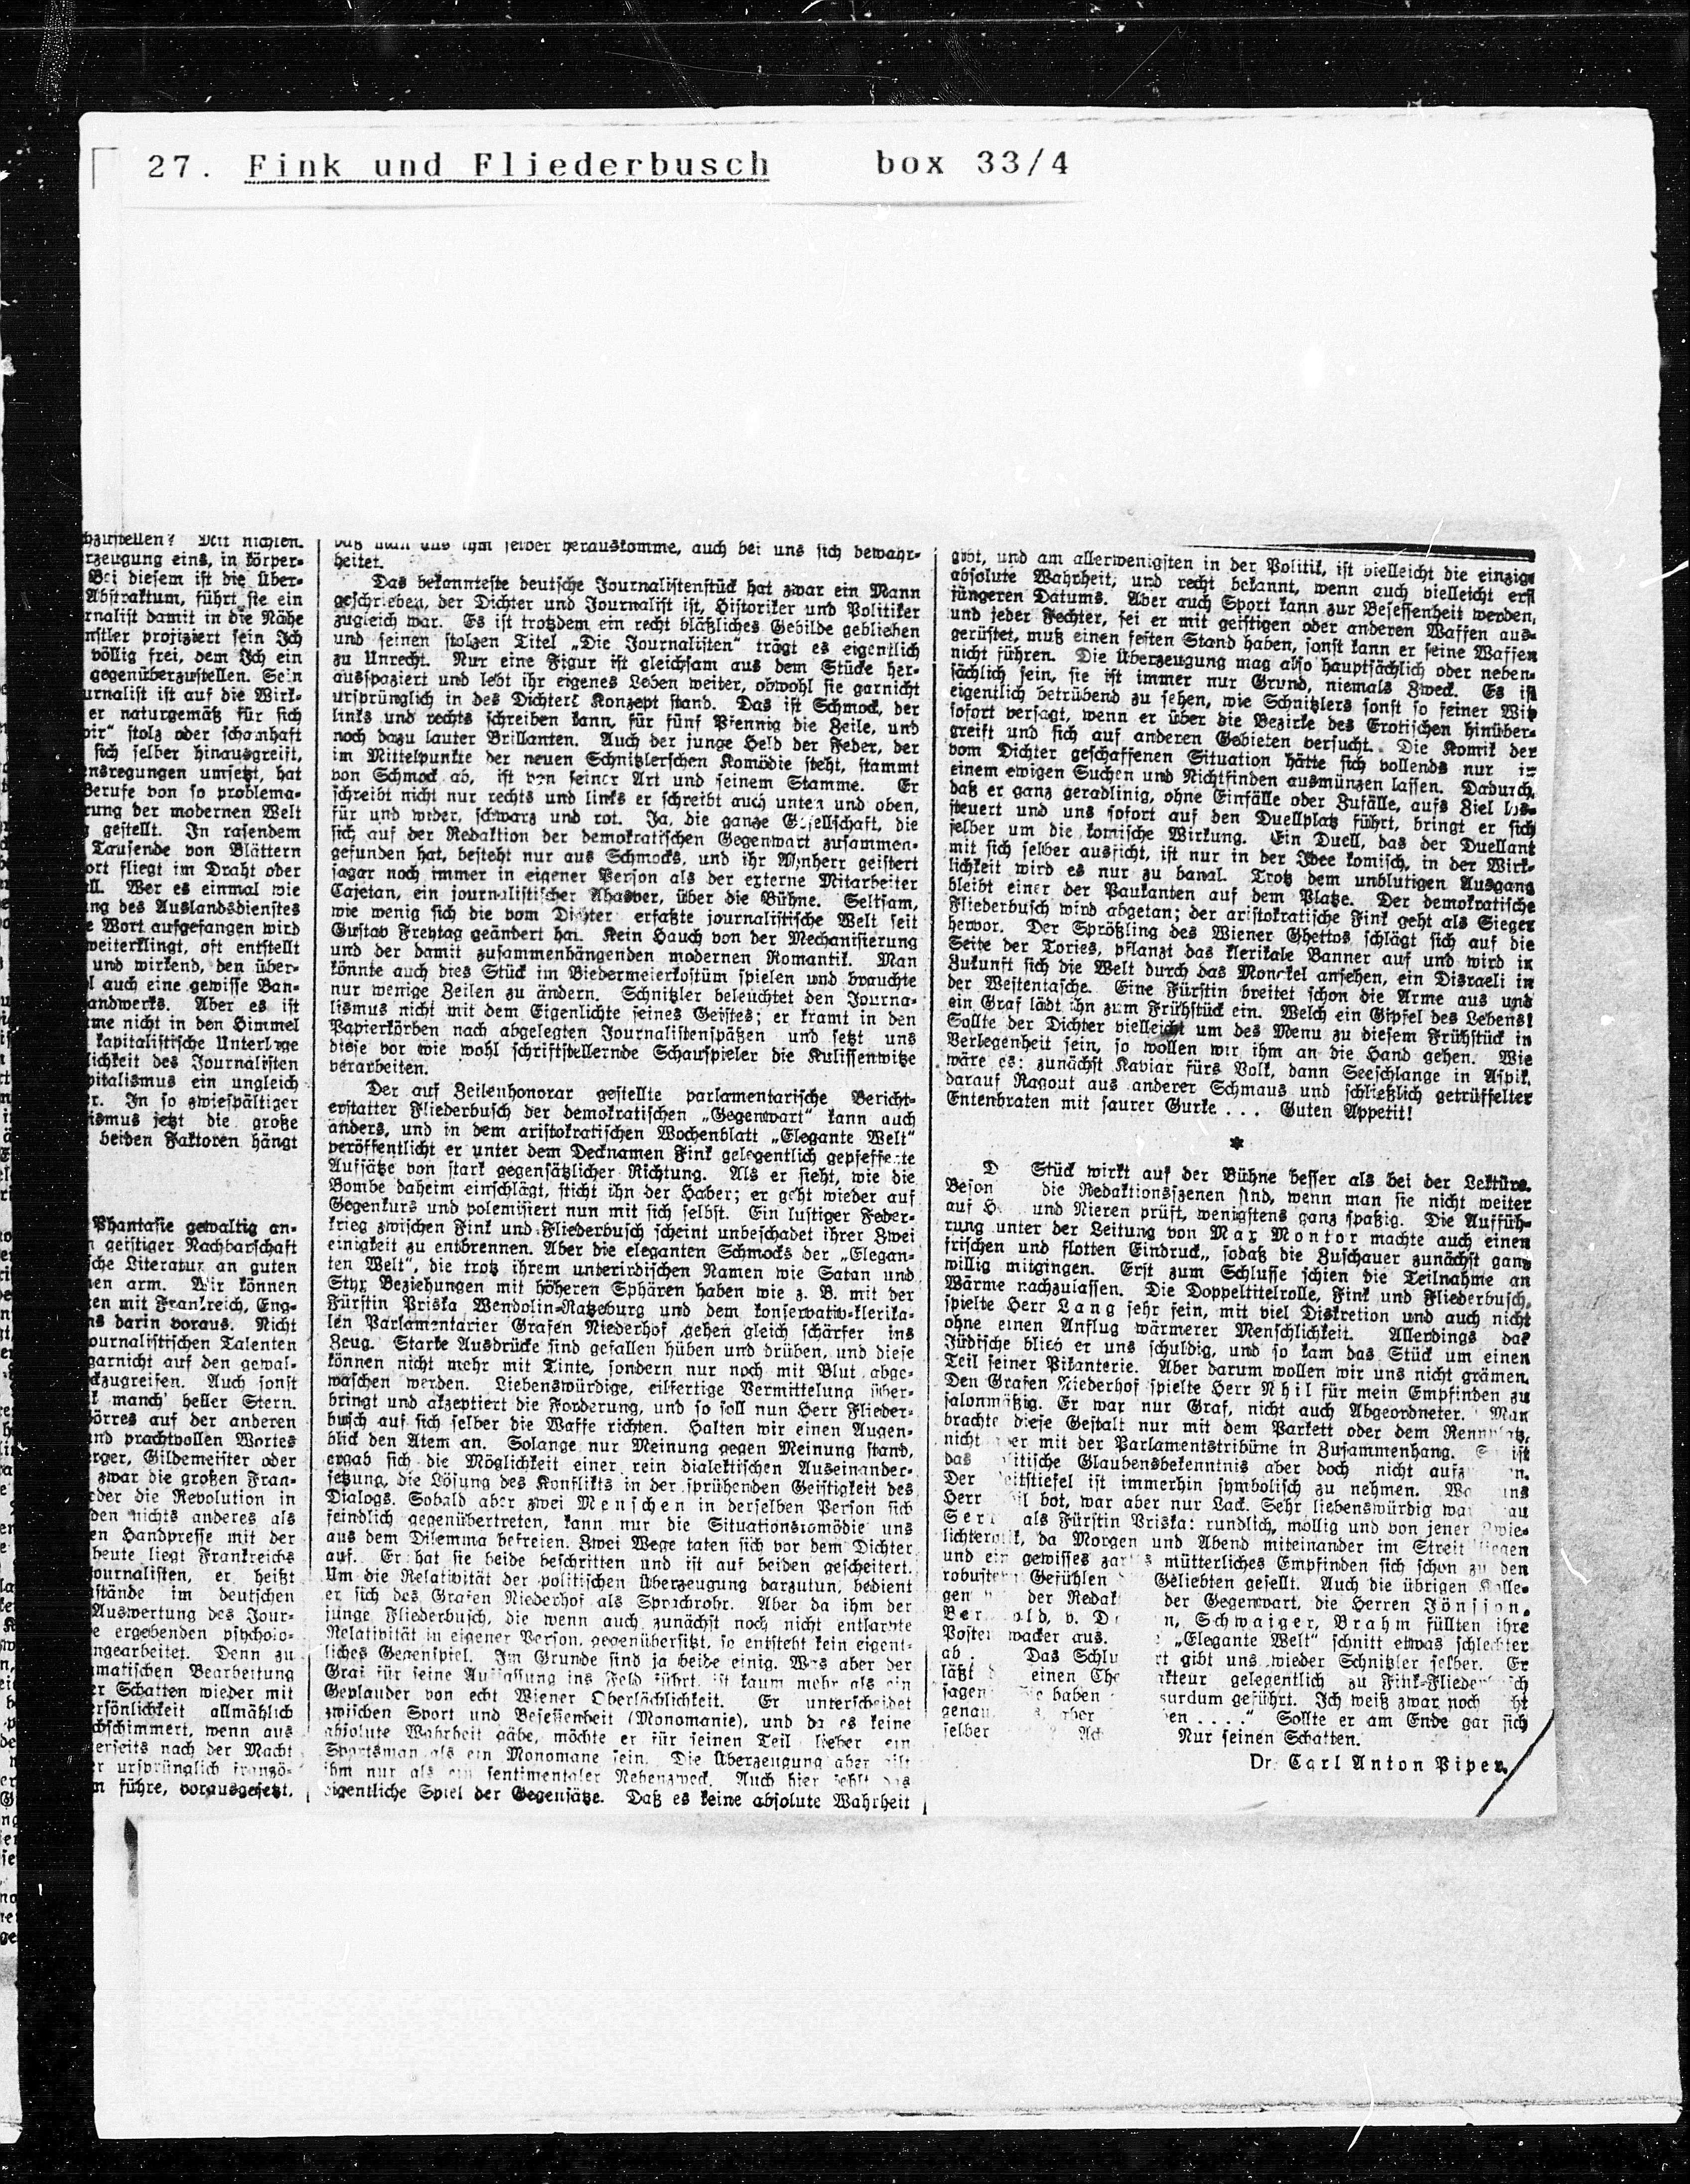 27. Fink und Fliederbusch box 33/4
hzustellen? Mit nichten.
rzeugung eins, in körper-
Bei diesem ist die Über-
Abstraktum, führt sie ein
rnalist damit in die Nähe
nstler projiziert sein Ich
völlig frei, dem Ich ein
gegenüberzustellen. Sein
urnalist ist auf die Wirk-
er naturgemäß für sich
wir“ stolz oder schamhaft
sich selber hinausgreift,
ensregungen umsetzt, hat
Berufe von so problema-
rung der modernen Welt
gestellt. In rasendem
Tausende von Blättern
ort fliegt im Draht oder
ll. Wer es einmal wie
ng des Auslandsdienstes
e Wort aufgefangen wird
weiterklingt, oft entstellt
und wirkend, den über-
l auch eine gewisse Ban-
andwerks. Aber es ist
me nicht in den Himmel
kapitalistische Unterlage
lichkeit des Journalisten
pitalismus ein ungleich
r. In so zwiespältiger
ismus jetzt die große
beiden Faktoren hängt
Phantasie gewaltig an-
n geistiger Nachbarschaft
sche Literatur an guten
nen arm. Wir können
ken mit Frankreich, Eng-
ns darin voraus. Nicht
ournalistischen Talenten
garnicht auf den gewal-
ckzugreifen. Auch sonst
k manch' heller Stern.
örres auf der anderen
und prachtvollen Wortes
erger, Gildemeister oder
zwar die großen Fran-
eder die Revolution in
den nichts anderes als
en Handpresse mit der
heute liegt Frankreichs
ournalisten, er heißt
stände im deutschen
Auswertung des Jour-
e ergebenden psycholo-
ngearbeitet. Denn zu
matischen Bearbeitung
er Schatten wieder mit
ersönlichkeit allmählich
chschimmert, wenn aus
erseits nach der Macht
r ursprünglich franzö-
n führe, vorausgesetzt,
daß man aus ihm selber herauskomme, auch bei uns sich bewahr-
heitet.
Das bekannteste deutsche Journalistenstück hat zwar ein Mann
geschrieben, der Dichter und Journalist ist, Historiker und Politiker
zugleich war. Es ist trotzdem ein recht bläßliches Gebilde geblieben
und seinen stolzen Titel „Die Journalisten“ trägt es eigentlich
zu Unrecht. Nur eine Figur ist gleichsam aus dem Stücke her-
ausspaziert und lebt ihr eigenes Leben weiter, obwohl sie garnicht
ursprünglich in des Dichters Konzept stand. Das ist Schmock, der
links und rechts schreiben kann, für fünf Pfennig die Zeile, und
noch dazu lauter Brillanten. Auch der junge Held der Feder, der
im Mittelpunkte der neuen Schnitzlerschen Komödie steht, stammt
von Schmock ab, ist von seiner Art und seinem Stamme. Er
schreibt nicht nur rechts und links er schreibt auch unten und oben,
für und wider, schwarz und rot. Ja, die ganze Gesellschaft, die
sich auf der Redaktion der demokratischen Gegenwart zusammen-
gefunden hat, besteht nur aus Schmocks, und ihr Ahnherr geistert
sogar noch immer in eigener Person als der externe Mitarbeiter
Cajetan, ein journalistischer Ahasver, über die Bühne. Seltsam,
wie wenig sich die vom Dichter erfaßte journalistische Welt seit
Gustav Freytag geändert hat. Kein Hauch von der Mechanisierung
und der damit zusammenhängenden modernen Romantik. Man
könnte auch dies Stück im Biedermeierkostüm spielen und brauchte
nur wenige Zeilen zu ändern. Schnitzler beleuchtet den Journa-
lismus nicht mit dem Eigenlichte seines Geistes; er kramt in den
Papierkörben nach abgelegten Journalistenspäßen und setzt uns
diese vor wie wohl schriftstellernde Schauspieler die Kulissenwitze
verarbeiten.
Der auf Zeilenhonorar gestellte parlamentarische Bericht-
erstatter Fliederbusch der demokratischen „Gegenwart“ kann auch
anders, und in dem aristokratischen Wochenblatt „Elegante Welt“
veröffentlicht er unter dem Decknamen Fink gelegentlich gepfefferte
Aufsätze von stark gegensätzlicher Richtung. Als er sieht, wie die
Bombe daheim einschlägt, sticht ihn der Haber; er geht wieder auf
Gegenkurs und polemisiert nun mit sich selbst. Ein lustiger Feder-
krieg zwischen Fink und Fliederbusch scheint unbeschadet ihrer Zwei
einigkeit zu entbrennen. Aber die eleganten Schmocks der „Elegan-
ten Welt“, die trotz ihrem unterirdischen Namen wie Satan und
Styx Beziehungen mit höheren Sphären haben wie z. B. mit der
Fürstin Priska Wendolin-Ratzeburg und dem konservativ-klerika-
len Parlamentarier Grafen Niederhof gehen gleich schärfer ins
Zeug. Starke Ausdrücke sind gefallen hüben und drüben, und diese
können nicht mehr mit Tinte, sondern nur noch mit Blut abge-
waschen werden. Liebenswürdige, eilfertige Vermittelung über-
bringt und akzeptiert die Forderung, und so soll nun Herr Flieder-
busch auf sich selber die Waffe richten. Halten wir einen Augen-
blick den Atem an. Solange nur Meinung gegen Meinung stand,
ergab sich die Möglichkeit einer rein dialektischen Auseinander-
setzung, die Lösung des Konflikts in der sprühenden Geistigkeit des
Dialogs. Sobald aber zwei Menschen in derselben Person sich
feindlich gegenübertreten, kann nur die Situationskomödie uns
aus dem Dilemma befreien. Zwei Wege taten sich vor dem Dichter
auf. Er hat sie beide beschritten und ist auf beiden gescheitert.
Um die Relativität der politischen Überzeugung darzutun, bedient
er sich des Grafen Niederhof als Sprachrohr. Aber da ihm der
junge Fliederbusch, die wenn auch zunächst noch nicht entlarvte
Relativität in eigener Person, gegenübersitzt, so entsteht kein eigent-
liches Gegenspiel. Im Grunde sind ja beide einig. Was aber der
Graf für seine Auffassung ins Feld führt, ist kaum mehr als ein
Geplauder von echt Wiener Oberflächlichkeit. Er unterscheidet
zwischen Sport und Besessenheit (Monomanie), und da es keine
absolute Wahrheit gäbe, möchte er für seinen Teil lieber ein
Sportsman als ein Monomane sein. Die Überzeugung aber gilt
ihm nur als ein sentimentaler Nebenzweck. Auch hier fehlt das
eigentliche Spiel der Gegensätze. Daß es keine absolute Wahrheit
gibt, und am allerwenigsten in der Politik, ist vielleicht die einzige
absolute Wahrheit, und recht bekannt, wenn auch vielleicht erst
jüngeren Datums. Aber auch Sport kann zur Besessenheit werden,
und jeder Fechter, sei er mit geistigen oder anderen Waffen aus-
gerüstet, muß einen festen Stand haben, sonst kann er seine Waffen
nicht führen. Die Überzeugung mag also hauptsächlich oder neben-
sächlich sein, sie ist immer nur Grund, niemals Zweck. Es ist
eigentlich betrübend zu sehen, wie Schnitzlers sonst so feiner Witz
sofort versagt, wenn er über die Bezirke des Erotischen hinüber-
greift und sich auf anderen Gebieten versucht. Die Komik der
vom Dichter geschaffenen Situation hätte sich vollends nur in
einem ewigen Suchen und Nichtfinden ausmünzen lassen. Dadurch,
daß er ganz geradlinig, ohne Einfälle oder Zufälle, aufs Ziel los-
steuert und uns sofort auf den Duellplatz führt, bringt er sich
selber um die komische Wirkung. Ein Duell, das der Duellant
mit sich selber ausficht, ist nur in der Idee komisch, in der Wirk-
lichkeit wird es nur zu banal. Trotz dem unblutigen Ausgang
bleibt einer der Paukanten auf dem Platze. Der demokratische
Fliederbusch wird abgetan; der aristokratische Fink geht als Sieger
hervor. Der Sprößling des Wiener Ghettos schlägt sich auf die
Seite der Tories, pflanzt das klerikale Banner auf und wird in
Zukunft sich die Welt durch das Monokel ansehen, ein Disraeli in
der Westentasche. Eine Fürstin breitet schon die Arme aus und
ein Graf lädt ihn zum Frühstück ein. Welch ein Gipfel des Lebens!
Sollte der Dichter vielleicht um des Menu zu diesem Frühstück in
Verlegenheit sein, so wollen wir ihm an die Hand gehen. Wie
wäre es: zunächst Kaviar fürs Volk, dann Seeschlange in Aspik,
darauf Ragout aus anderer Schmaus und schließlich getrüffelter
Entenbraten mit saurer Gurke ... Guten Appetit!
*
D Stück wirkt auf der Bühne besser als bei der Lektüre.
Beson die Redaktionsszenen sind, wenn man sie nicht weiter
auf H und Nieren prüft, wenigstens ganz spaßig. Die Auffüh-
rung unter der Leitung von Max Montor machte auch einen
frischen und flotten Eindruck, sodaß die Zuschauer zunächst ganz
willig mitgingen. Erst zum Schlusse schien die Teilnahme an
Wärme nachzulassen. Die Doppeltitelrolle, Fink und Fliederbusch,
spielte Herr Lang sehr fein, mit viel Diskretion und auch nicht
ohne einen Anflug wärmerer Menschlichkeit. Allerdings das
Jüdische blieb er uns schuldig, und so kam das Stück um einen
Teil seiner Pikanterie. Aber darum wollen wir uns nicht grämen.
Den Grafen Niederhof spielte Herr Nhil für mein Empfinden zu
salonmäßig. Er war nur Graf, nicht auch Abgeordneter. Man
brachte diese Gestalt nur mit dem Parkett oder dem Rennplatz,
nicht aber mit der Parlamentstribüne in Zusammenhang. ist
das itische Glaubensbekenntnis aber doch nicht aufz n.
Der eitstiefel ist immerhin symbolisch zu nehmen. Wa uns
Herr il bot, war aber nur Lack. Sehr liebenswürdig war au
Ser als Fürstin Priska: rundlich, mollig und von jener Zwie-
lichterotik, da Morgen und Abend miteinander im Streit liegen
und ein gewisses zartes mütterliches Empfinden sich schon zu den
robusten Gefühlen Geliebten gesellt. Auch die übrigen Kolle-
gen der Redak der Gegenwart, die Herren Jönsson,
Ber old, v. D n, Schwaiger, Brahm füllten ihre
Posten wacker aus. „Elegante Welt“ schnitt etwas schlechter
ab. Das Schlu rt gibt uns wieder Schnitzler selber. Er
läßt einen Che akteur gelegentlich zu Fink-Flieder ch
sagen Sie haben surdum geführt. Ich weiß zwar noch cht
genau aber en ....“ Sollte er am Ende gar sich
selber Nur seinen Schatten.
Dr. Carl Anton Piper.